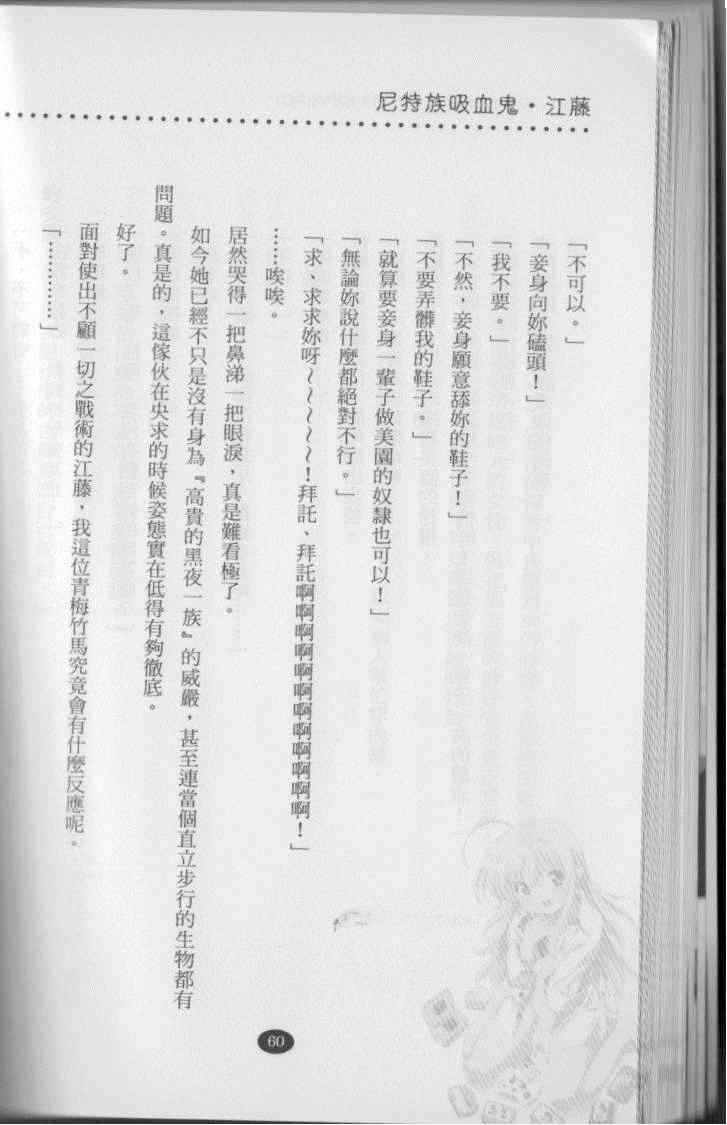 尼特族吸血鬼・江藤
「不可以。」
「妾身向妳磕頭！」
「我不要。」
「不然，妾身願意舔妳的鞋子！」
「不要弄髒我的鞋子。」
「就算要妾身一輩子做美園的奴隸也可以！」
「無論妳說什麼都絕對不行。」
「求、求求妳呀～～～～～！拜託、拜託啊啊啊啊啊啊啊啊啊啊啊啊！」
……唉唉。
居然哭得一把鼻涕一把眼淚，真是難看極了。
如今她已經不只是沒有身為『高貴的黑夜一族』的威嚴，甚至連當個直立步行的生物都有
問題。真是的，這傢伙在央求的時候姿態實在低得有夠徹底。
好了。
面對使出不顧一切之戰術的江藤，我這位青梅竹馬究竟會有什麼反應呢。
「…………」
60